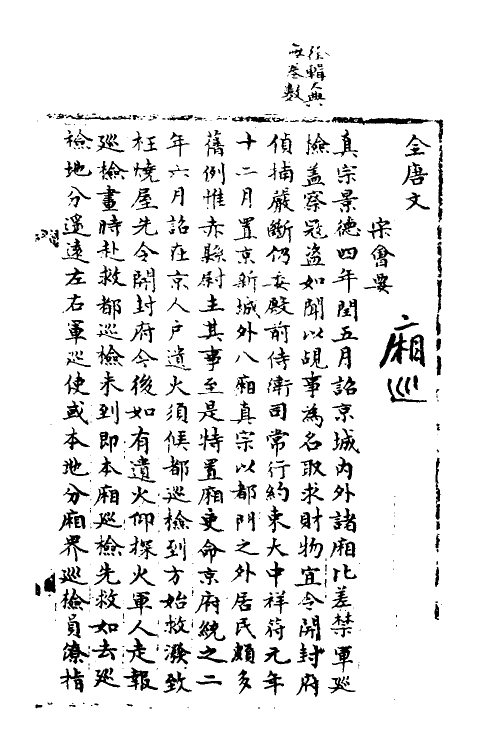 徐輯典
無卷數
全唐文
宋會要
廂巡
真宗景德四年閏五月詔京城内外諸廂比差禁軍巡
撿盖察寇盗如聞以覘事為名取求財物宜令開封府
偵捕嚴斷仍委殿前侍衛司常行約束大中祥符元年
十二月置京新城外八廂真宗以都門之外居民頗多
舊例惟赤縣尉主其事至是特置廂吏命京府統之二
年六月詔在京人户遺火須候都巡檢到方始救潑致
枉燒屋先令開封府今後如有遺火仰探火軍人走報
巡檢畫時赴救都巡檢未到即本廂巡檢先救如去巡
檢地分遥遠左右軍巡使或本地分廂界巡檢員僚指